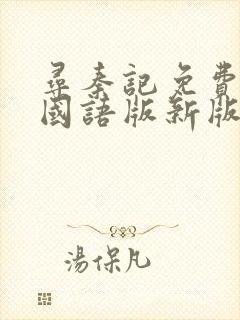 尋秦記免費
國語版新版
湯保凡